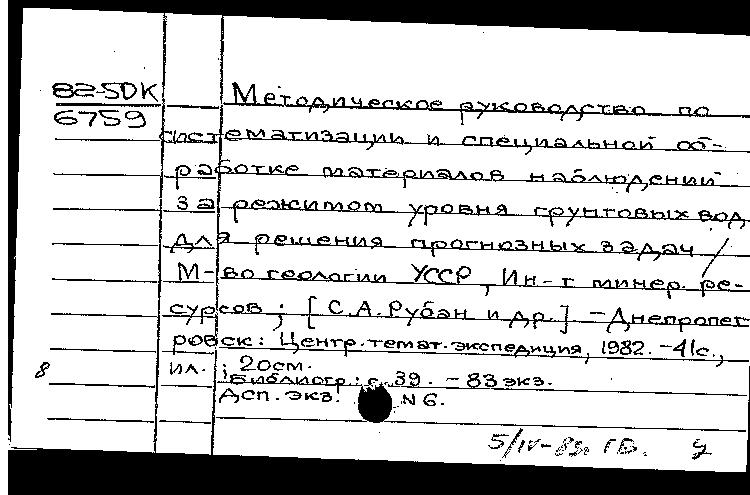 82-5DK
6759
Методическое руководство по
систематизации и специальной об-
работке материалов наблюдений
за режимом уровня грунтовых вод
для решения прогнозных задач /
М-во геологии УССР, Ин-т минер. ре-
сурсов ; [С.А.Рубан и др.] . -Днепропет
ровск: Центр.темат.экспедиция, 1982. -41с.,
ил. ; 20см.
8
Библиогр.: с.39. - 83 экз.
Дсп. экз. N 6.
5/IV-83г.